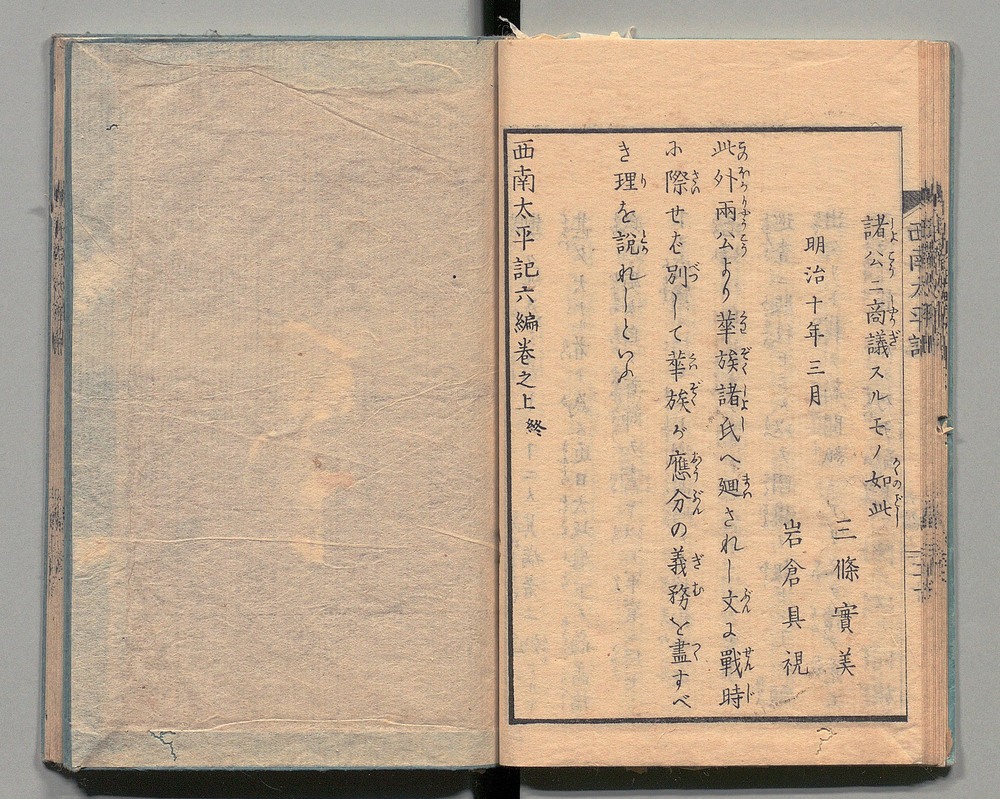 諸公ニ商議スルモノ如此
三條實美
明治十年三月
岩倉具視
此外兩公より華族諸氏へ廻されし文に戰時
に際せば別して華族が應分の義務を盡すべ
き理を説れしといふ
西南太平記六編巻之上終
西南太平記